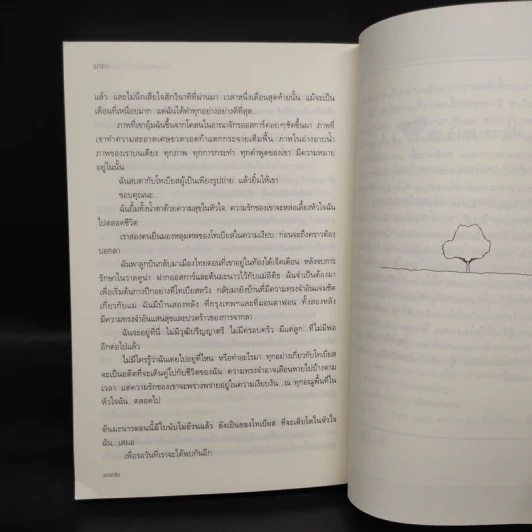 มาลา
แล้ว และไม่นึกเสียใจสักวินาทีที่ผ่านมา เวลาหนึ่งเดือนสุดท้ายนั้น แม้จะเป็น
เดือนที่เหนื่อยมาก แต่ฉันได้ทำทุกอย่างอย่างดีที่สุด...
ภาพที่เขาอุ้มฉันขึ้นจากโคลนในอาณาจักรออสการ์ค่อยๆชัดขึ้นมา ภาพที่
เขาทำความสะอาดเศษขวดวอดก้าแตกกระจายเต็มพื้น ภาพในอ่างอาบน้ำ
ภาพของเราบนเตียง ทุกภาพ ทุกการกระทำ ทุกคำพูดของเขา มีความหมาย
อยู่ในนั้น
ฉันสบตากับโทเบียสผู้เป็นเพียงรูปถ่าย แล้วยิ้มให้เขา
ขอบคุณนะ...
ฉันยิ้มทั้งน้ำตาด้วยความสุขในหัวใจ ความรักของเขาจะหล่อเลี้ยงหัวใจฉัน
ไปตลอดชีวิต
เราสองคนยืนมองหลุมศพของโทเบียสในความเงียบ ก่อนจะถึงคราวต้อง
บอกลา
ฉันพาลูกบินกลับมาเมืองไทยตอนที่เขาอยู่ในท้องได้เจ็ดเดือน หลังจบการ
รักษาในวาลดูน่า ฝากออสการ์และต้นมะนาวไว้กับแม่อีดิธ ฉันจำเป็นต้องมา
เพื่อเริ่มต้นกางปีกอย่างที่โทเบียสหวัง กลับมายังบ้านที่มีความทรงจำอันแจ่มชัด
เกี่ยวกับแม่ ฉันมีบ้านสองหลัง ที่กรุงเทพฯและที่มอนตาฟอน ทั้งสองหลัง
มีความทรงจำอันแสนสุขและปวดร้าวของการจากลา
ฉันจะอยู่ที่นี่ ไม่มีวุฒิปริญญาตรี ไม่มีครอบครัว มีแต่ลูก...ที่ไม่มีพ่อ
อีกต่อไปแล้ว
ไม่มีใครรู้ว่าฉันเคยไปอยู่ที่ไหน หรือทำอะไรมา ทุกอย่างเกี่ยวกับโทเบียส
จะเป็นอดีตที่จะเดินคู่ไปกับชีวิตของฉัน ความทรงจำอาจเลือนหายไปบ้างตาม
เวลา แต่ความรักของเขาจะพร่างพรายอยู่ในความเงียบงัน...ณ ทุกอณูพื้นที่ใน
หัวใจฉัน...ตลอดไป
ต้นมะนาวตอนนี้มีใบนับไม่ถ้วนแล้ว ยังเป็นของโทเบียส ที่จะเติบโตในหัวใจ
ฉัน...เสมอ
เพื่อรอวันที่เราจะได้พบกันอีก